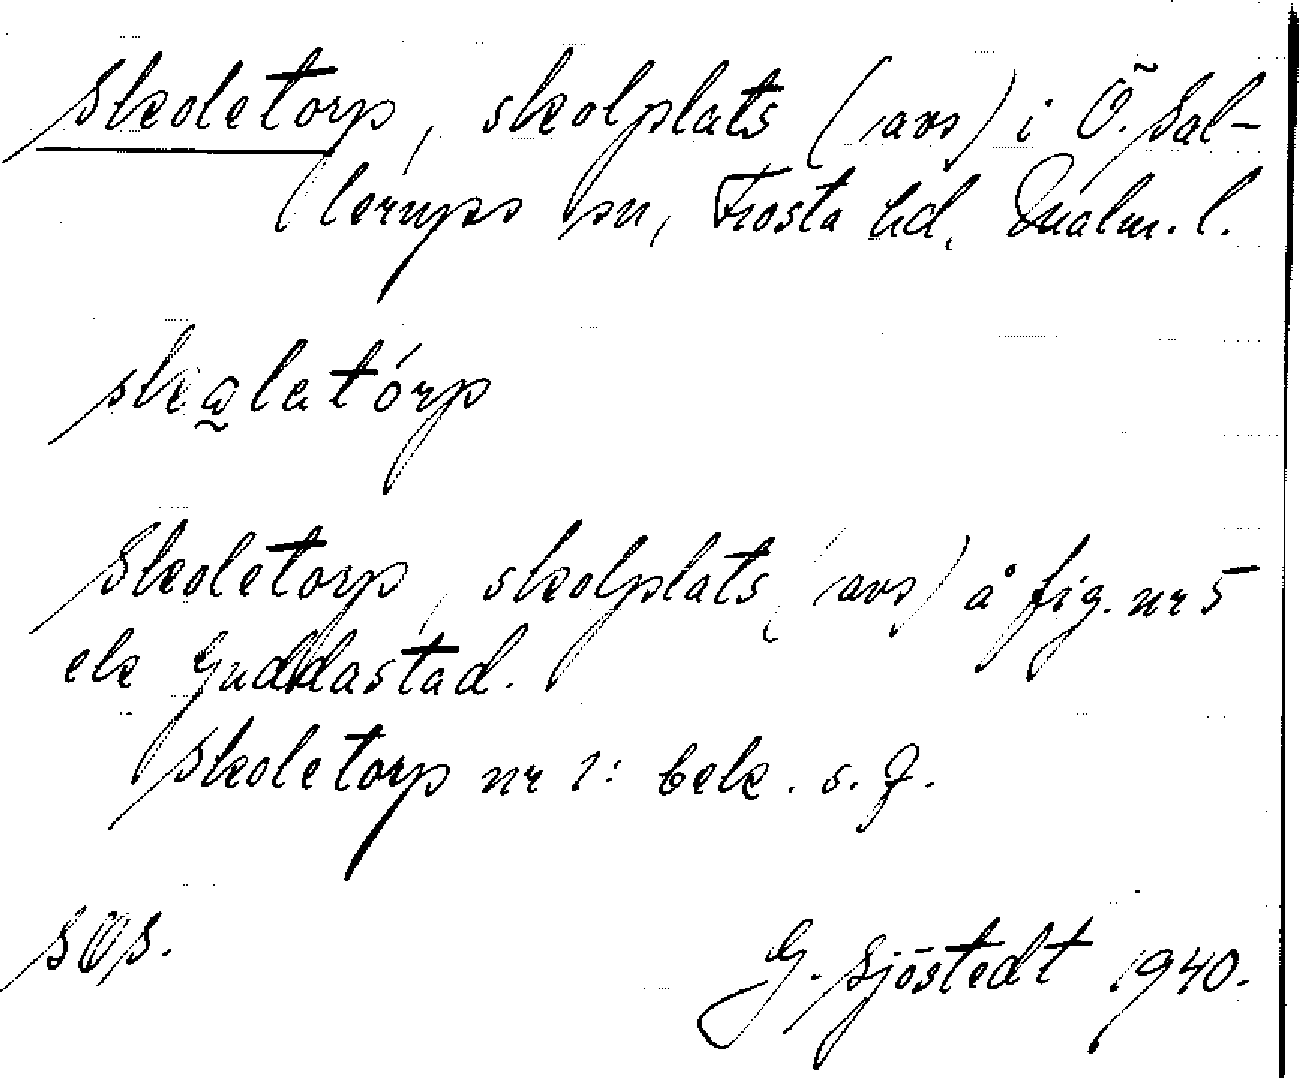 Skoletorp, skolplats (avs) i Ö. Sal-
lerups sn, Frosta hd, Malm. l.
skɑ̰latórp
Skoletorp, skolplats (avs) å fig. nr 5
ek Guddastad.
Skoletorp nr 1: bek. s. f.
SOS.
G. Sjöstedt 1940.